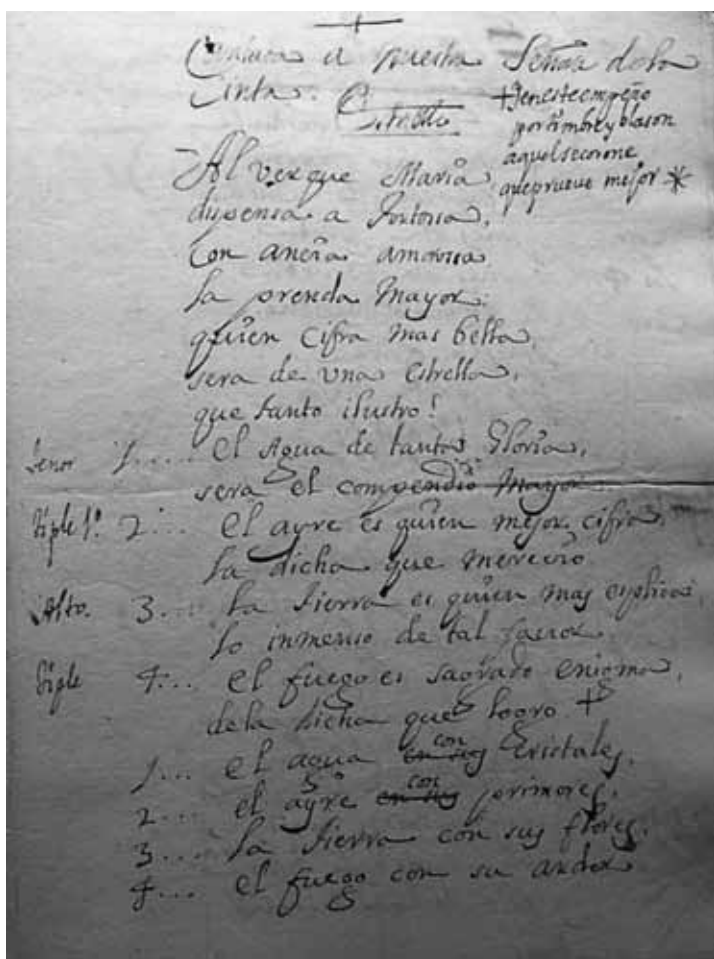 Cantada a Nuestra Señora dela
Cinta. Estrivillo
+ en este empeño
por timbre y blason
aquel se corone
que prueve mejor *
Al ver que Maria
dispensa a Tortossa,
Con ancia amorossa
la prenda Mayor.
quien cifra mas bella,
sera de una Estrella,
que tanto ilustro!
Tenor 1.... El Agua de tantas Glorias,
sera el compendio Mayor.
Tiple 1º. 2... El ayre es quien mejor cifra,
la dicha que mereció.
Alto. 3... La tierra es quien mas esplica,
lo inmenso de tal favor.
Tiple 4... El fuego es sagrado enigma,
dela dicha que logro +
1... el agua en sus con Cristales,
2... el ayre en sus con primores,
3... La tierra con sus flores,
4... El fuego con su ardor